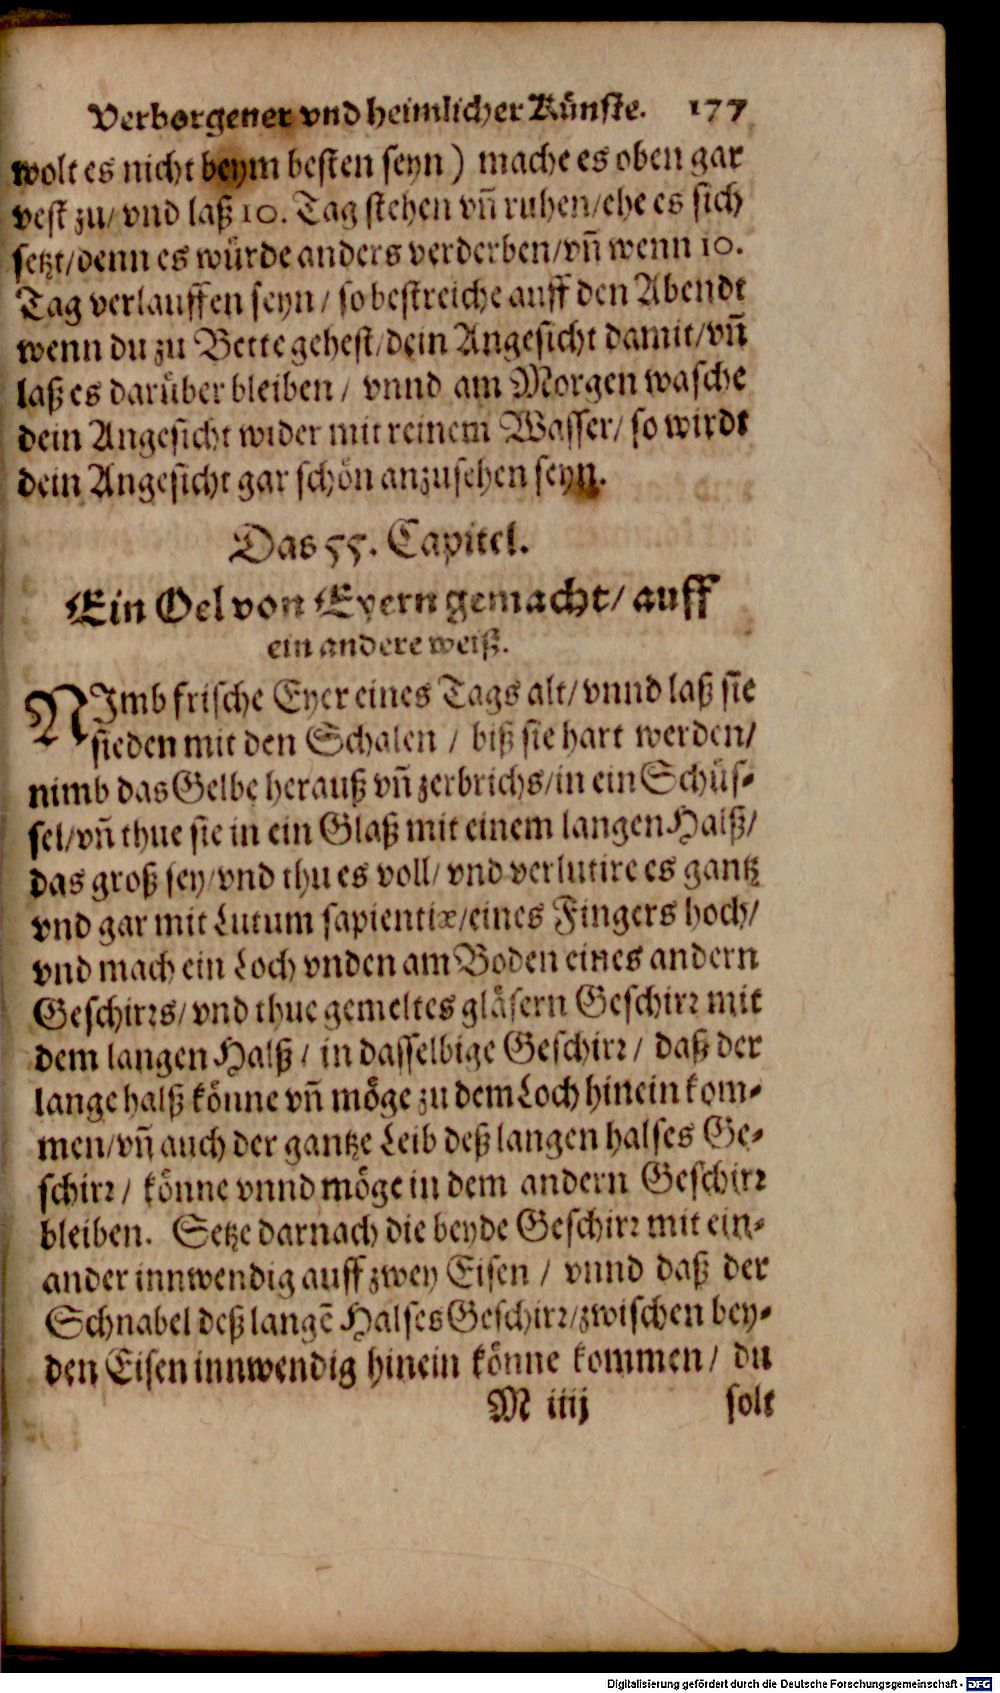 Verborgener vnd heimlicher Künste. 177
wolt es nicht beym besten seyn) mache es oben gar
vest zu/ vnd laß 10. Tag stehen vñ ruhen/ehe es sich
setzt/denn es würde anders verderben/vñ wenn 10.
Tag verlauffen seyn/ so bestreiche auff den Abendt
wenn du zu Bette gehest/dein Angesicht damit/vñ
laß es darüber bleiben/ vnnd am Morgen wasche
dein Angesicht wider mit reinem Wasser/ so wirdt
dein Angesicht gar schön anzusehen seyn.
Das 55. Capitel.
Ein Oel von Eyern gemacht/ auff
ein andere weiß.
NImb frische Eyer eines Tags alt/ vnnd laß sie
sieden mit den Schalen / biß sie hart werden/
nimb das Gelbe herauß vñ zerbrichs/in ein Schüs-
sel/vñ thue sie in ein Glaß mit einem langen Halß/
das groß sey/vnd thu es voll/ vnd verlutire es gantz
vnd gar mit Lutum sapientiæ/eines Fingers hoch/
vnd mach ein Loch vnden am Boden eines andern
Geschirꝛs/ vnd thue gemeltes gläsern Geschirꝛ mit
dem langen Halß / in dasselbige Geschirꝛ / daß der
lange halß könne vñ möge zu dem Loch hinein kom-
men/vñ auch der gantze Leib deß langen halses Ge-
schirꝛ/ könne vnnd möge in dem andern Geschirꝛ
bleiben. Setze darnach die beyde Geschirꝛ mit ein-
ander innwendig auff zwey Eisen / vnnd daß der
Schnabel deß langẽ Halses Geschirꝛ/zwischen bey-
den Eisen innwendig hinein könne kommen/ du
M iiij solt
Digitalisierung gefördert durch die Deutsche Forschungsgemeinschaft - DFG